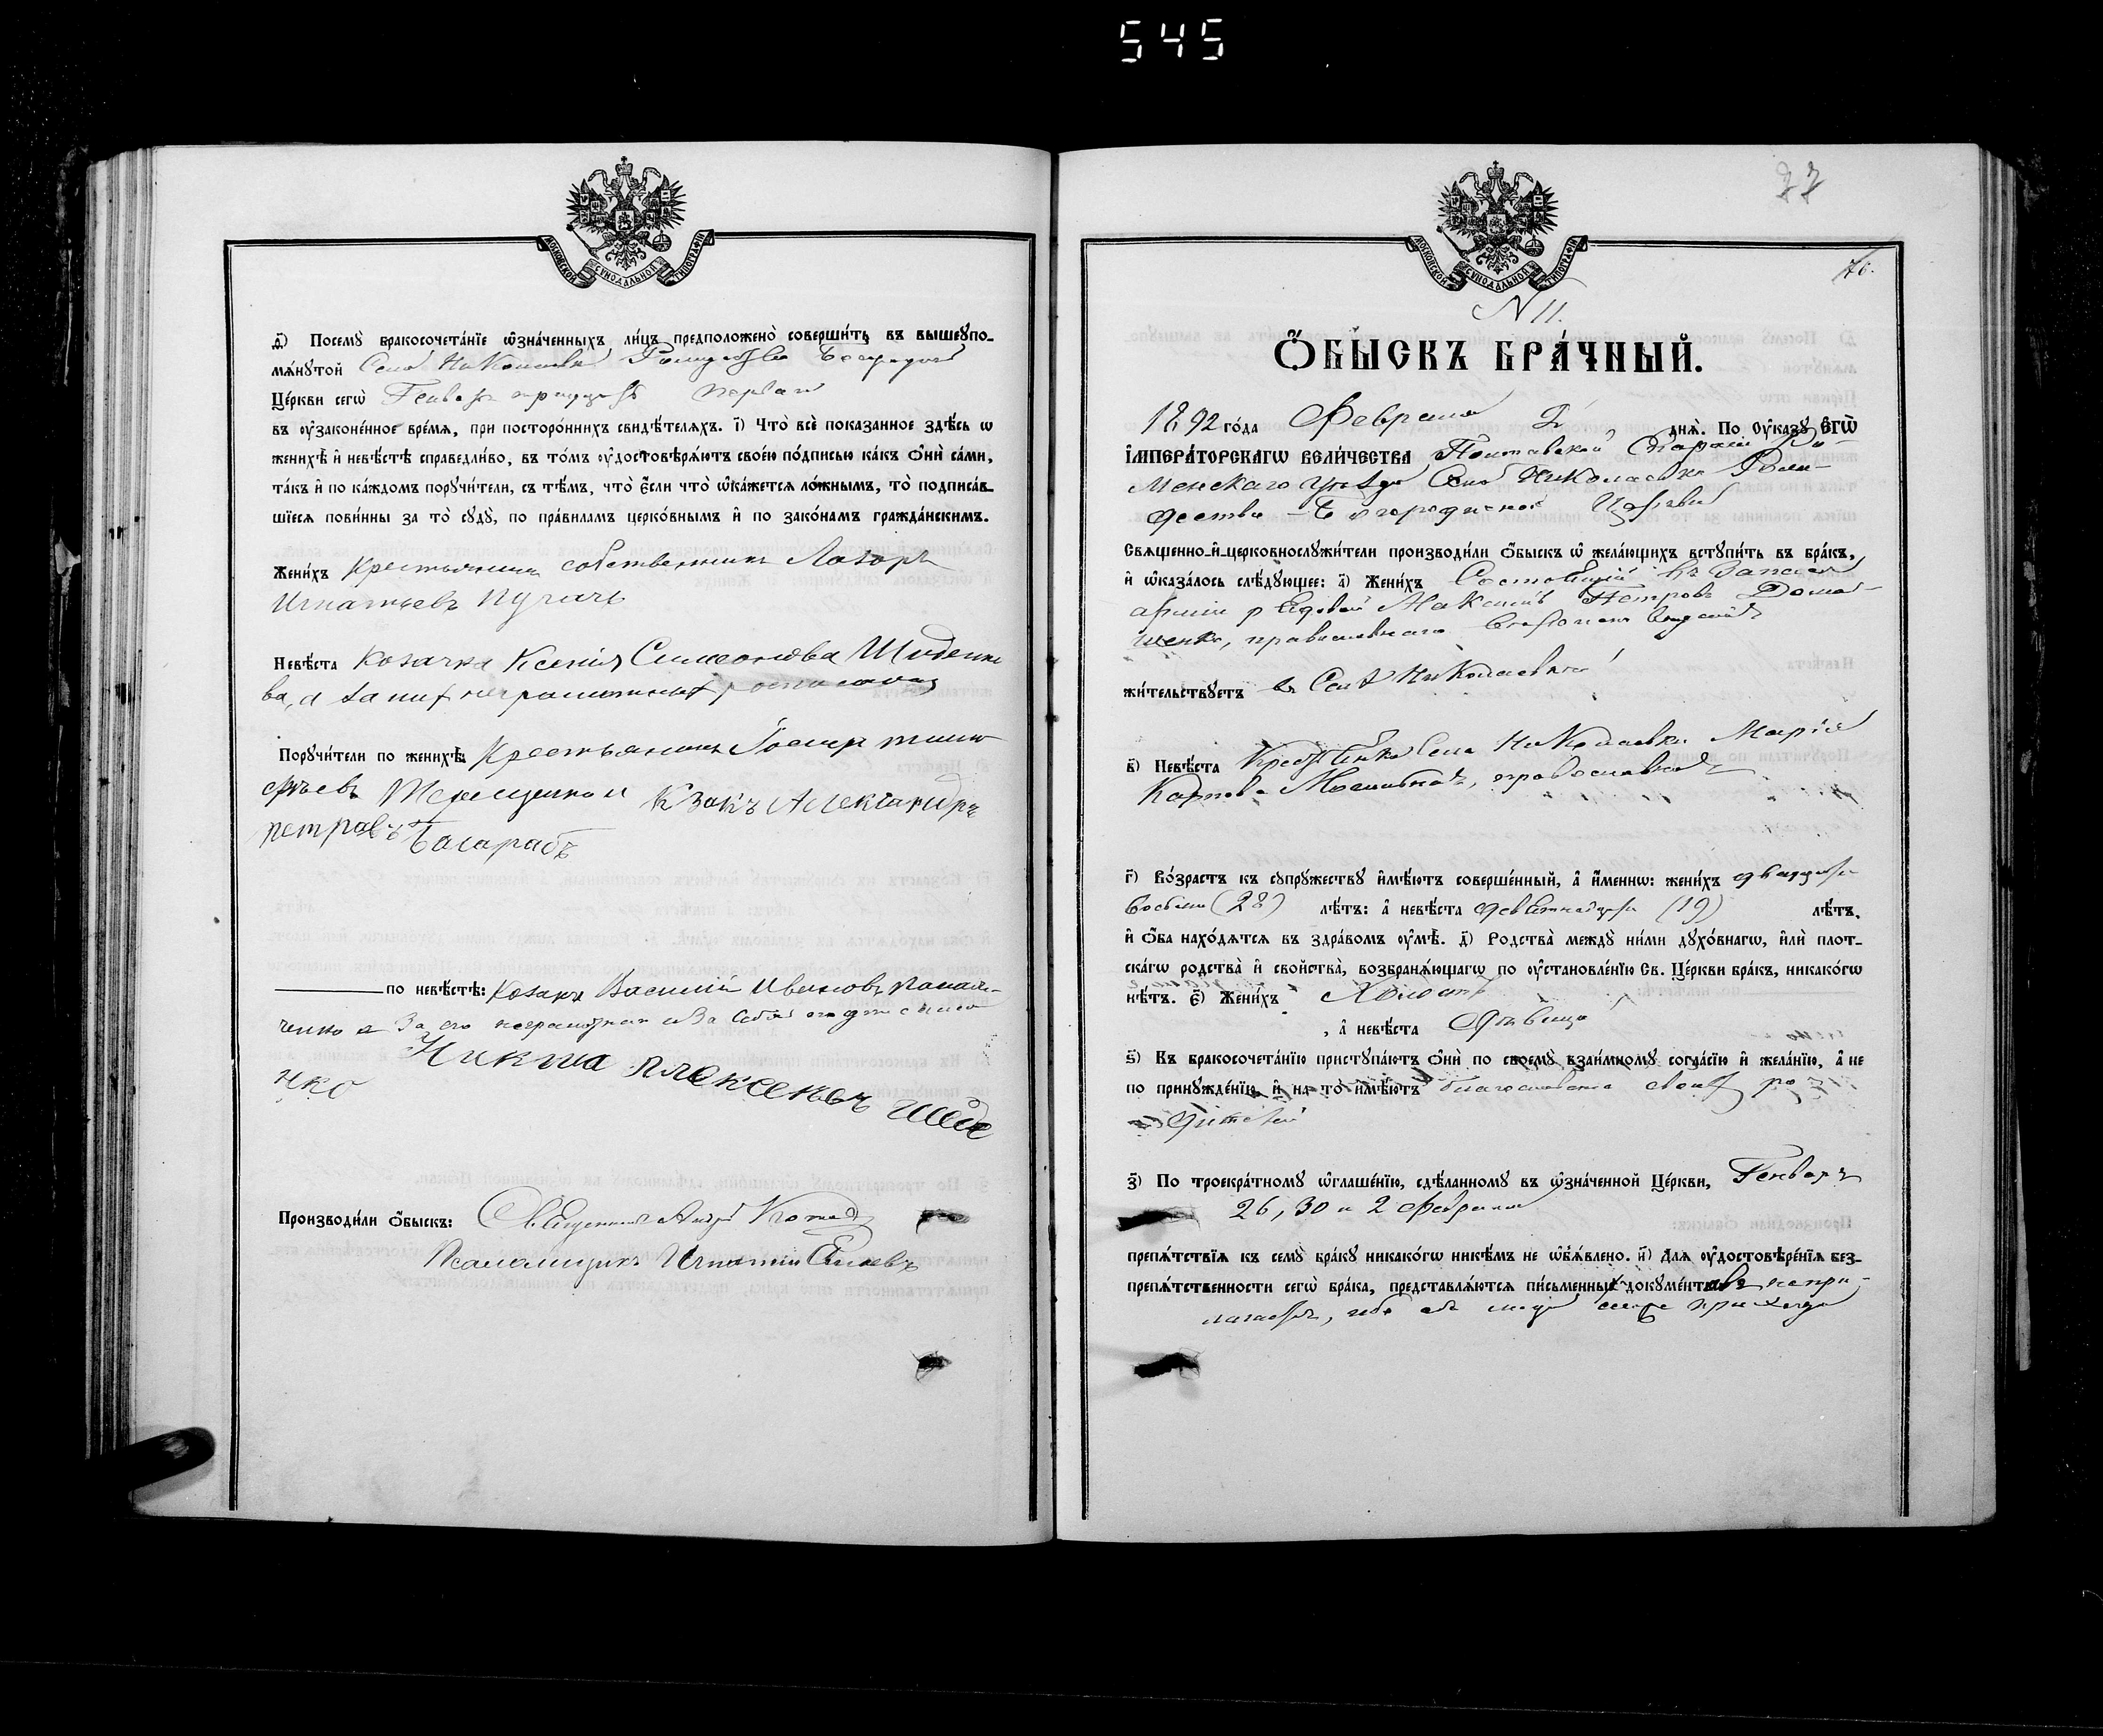 545
МОСКОВСКОЙ СУНОДАЛЬНОЙ ТИПОГРАФІИ
д҃і) Посемꙋ̀ бракосочета́нїе ѡ҆зна́ченныхъ ли́цъ предположено̀ соверши́ть въ вышеꙋпо-
мѧ́нꙋтой Села Николаевки Рождество Богородичной
Це́ркви сегѡ̀ Генваря тридцать перваго
въ ᲂу҆зако́ненное вре́мѧ, при посторо́ннихъ свидѣ́телѧхъ. і҃) Что̀ всѐ показанное здѣ́сь ѡ
женихѣ̀ и҆ невѣ́стѣ справедли́во, въ то́мъ ᲂу҆достовѣрѧ́ютъ свое́ю по́дписью ка́къ ѻ҆нѝ са́ми,
та́къ и҆ по ка́ждомъ порꙋчи́тели, съ тѣ́мъ, что̀ є҆́сли что̀ ѡ҆ка́жетсѧ ло́жнымъ, то̀ подписа́в-
шїесѧ пови́нны за то̀ сꙋдꙋ̀, по пра́виламъ церко́внымъ и҆ по зако́намъ гражда́нскимъ.
Жени́хъ Крестьянинъ собственникъ Лазорь
Игнатьевъ Пугачъ
Невѣ́ста Козачка Ксенія Симеонова Шиденко
ва, а за них неграмотных росписался
Порꙋчи́тели по женихѣ̀: Крестьянинъ Іосифъ Тимо
феевъ Терещенко и Кзакъ Александръ
петравъ Басарабъ
по невѣ́стѣ: Козакъ Василій Ивановъ Панас-
ченко а За его неграмотнаго и За себя
Никита Алексеевъ шиде
нко
Производи́ли ѻ҆́быскъ: Священникъ Андрей
Псаломщикъ Игнатій
77
76.
МОСКОВСКОЙ СУНОДАЛЬНОЙ ТИПОГРАФІИ
N 11.
Ѻ҆́БЫСКЪ БРА́ЧНЫЙ.
1892 го́да Февраля 2 днѧ̀. По ᲂу҆ка́зꙋ Є҆ГѠ̀
І҆МПЕРА́ТОРСКАГѠ ВЕЛИ́ЧЕСТВА Полтавской Епархіи Ро-
менскаго уѣзда Села Николаевки Рож-
дество-Богородичной Церкви
Свѧще́нно-и҆-церковнослꙋжи́тели производи́ли ѻ҆́быскъ ѡ҆ жела́ющихъ встꙋпи́ть въ бра́къ,
и҆ ѡ҆каза́лось слѣ́дꙋющее: а҃) Жени́хъ Состоящій въ Запасѣ
арміи рядовой Максимъ Петровъ Дома-
шенко, православнаго вѣроисповѣданія
жи́тельствꙋетъ въ Селѣ Николаевки
в҃) Невѣ́ста Крестьянка Села Николаевки Марія
Карпова, православная
г҃) Во́зрастъ къ сꙋпрꙋ́жествꙋ и҆мѣ́ютъ соверше́нный, а҆ и҆́менно: жени́хъ двадцати
восьми (28) лѣ́тъ: а҆ невѣ́ста девятнадцати (19) лѣ́тъ.
и҆ ѻ҆́ба нахо́дѧтсѧ въ здра́вомъ ᲂу҆мѣ̀. д҃) Родства̀ междꙋ̀ ни́ми дꙋхо́внагѡ, и҆лѝ плот-
ска́гѡ родства̀ и҆ свойства̀, возбранѧ́ющагѡ по ᲂу҆становле́нїю Св. Це́ркви бра́къ, никако́гѡ
нѣ́тъ. є҃) Жени́хъ Холостъ
, а҆ невѣ́ста Дѣвица
ѕ҃) Къ бракосочета́нїю пристꙋпа́ютъ ѻ҆нѝ по своемꙋ̀ взаи́мномꙋ согла́сїю и҆ жела́нїю, а҆ не
по принꙋжде́нїю, и҆ на то̀ и҆мѣ́ютъ благословеніе своихъ ро
дителей
з҃) По троекра́тномꙋ ѡ҆глаше́нїю, сдѣ́ланномꙋ въ ѡ҆зна́ченной Це́ркви, Генваря
26, 30 и 2 Февраля
препѧ́тствїѧ къ семꙋ̀ бра́кꙋ никако́гѡ никѣ́мъ не ѡ҆б̾ѧ́влено. и҃) Длѧ ᲂу҆достовѣре́нїѧ без-
препѧ́тственности сегѡ̀ бра́ка, представлѧ́ютсѧ пи́сьменныхъ докꙋме́нтовъ непри-
лагается, ибо оба лица сего прихода